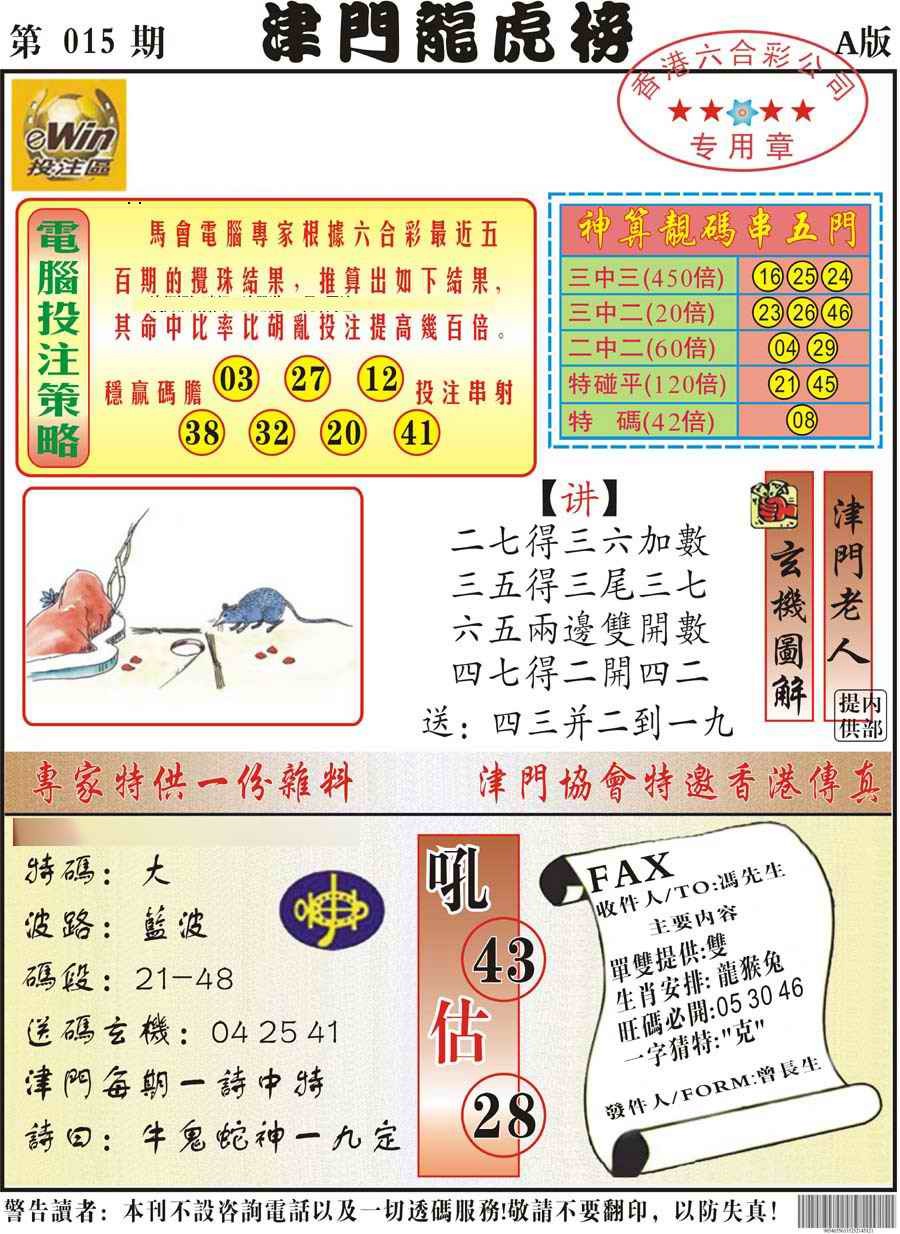 第 015 期
津門龍虎榜
A版
香港六合彩公司
专用章
eWin
投注區
電腦投注策略
馬會電腦專家根據六合彩最近五
百期的攪珠結果，推算出如下結果，
其命中比率比胡亂投注提高幾百倍。
穩贏碼膽 03 27 12 投注串射
38 32 20 41
神算靚碼串五門
三中三(450倍) 16 25 24
三中二(20倍) 23 26 46
二中二(60倍) 04 29
特碰平(120倍) 21 45
特 碼(42倍) 08
【讲】
二七得三六加數
三五得三尾三七
六五兩邊雙開數
四七得二開四二
送：四三并二到一九
玄機圖解
津門老人
提内
供部
專家特供一份雜料
津門協會特邀香港傳真
特碼：大
波路：藍波
碼段：21－48
送碼玄機：04 25 41
津門每期一詩中特
詩曰：牛鬼蛇神一九定
吼
43
估
28
FAX
收件人/TO:馮先生
主要内容
單雙提供:雙
生肖安排:龍猴兔
旺碼必開:05 30 46
一字猜特:"克"
發件人/FORM:曾長生
警告讀者：本刊不設咨詢電話以及一切透碼服務!敬請不要翻印，以防失真！